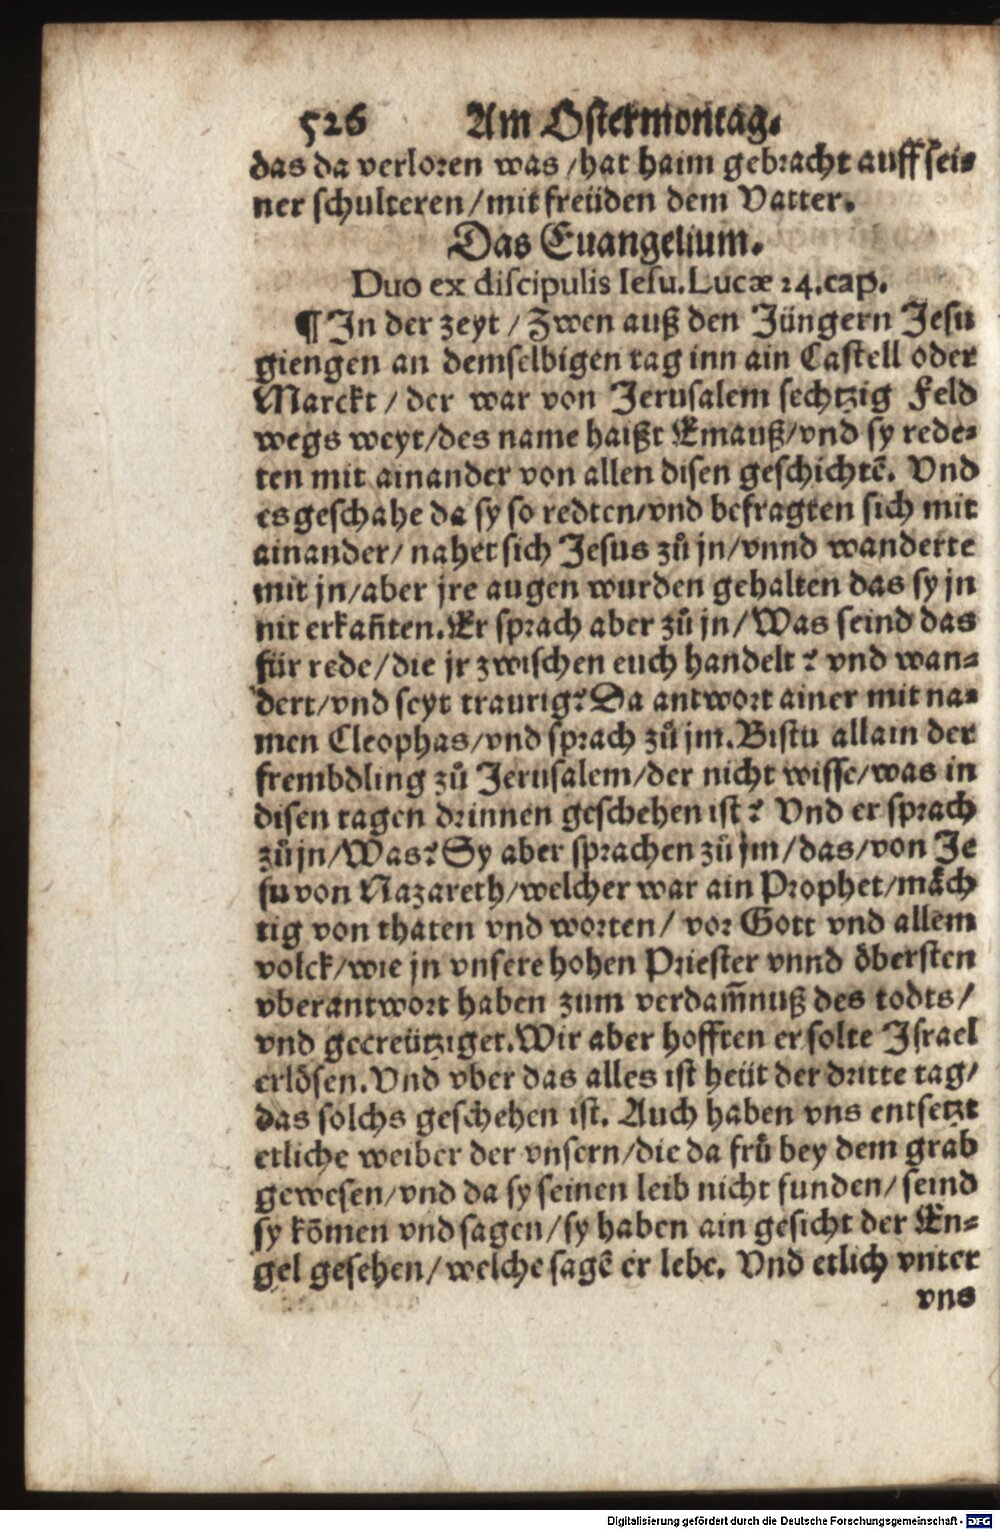 526 Am Ostermontag.
das da verloren was /hat haim gebracht auff sei⸗
ner schulteren/mit freüden dem Vatter.
Das Euangelium.
Duo ex discipulis Iesu. Lucæ 24. cap.
¶ In der zeyt / Zwen auß den Jüngern Jesu
giengen an demselbigen tag inn ain Castell oder
Marckt / der war von Jerusalem sechtzig Feld
wegs weyt/des name haißt Emauß/vnd sy rede⸗
ten mit ainander von allen disen geschichtē. Vnd
es geschahe da sy so redten/vnd befragten sich mit
ainander/ nahet sich Jesus zů jn/vnnd wanderte
mit jn/aber jre augen wurden gehalten das sy jn
nit erkañten. Er sprach aber zů jn/Was seind das
für rede/die jr zwischen euch handelt? vnd wan⸗
dert/vnd seyt traurig? Da antwort ainer mit na⸗
men Cleophas/vnd sprach zů jm. Bistu allain der
frembdling zů Jerusalem/der nicht wisse/was in
disen tagen drinnen geschehen ist? Vnd er sprach
zů jn/Was? Sy aber sprachen zů jm/das/von Je
su von Nazareth/welcher war ain Prophet/mäch
tig von thaten vnd worten/ vor Gott vnd allem
volck/wie jn vnsere hohen Priester vnnd öbersten
vberantwort haben zum verdam̄nuß des todts/
vnd gecreütziget. Wir aber hofften er solte Israel
erlösen. Vnd vber das alles ist heüt der dritte tag/
das solchs geschehen ist. Auch haben vns entsetzt
etliche weiber der vnsern/die da frů bey dem grab
gewesen/vnd da sy seinen leib nicht funden/ seind
sy kōmen vnd sagen/sy haben ain gesicht der En⸗
gel gesehen/welche sagē er lebe. Vnd etlich vnter
vns
Digitalisierung gefördert durch die Deutsche Forschungsgemeinschaft - DFG